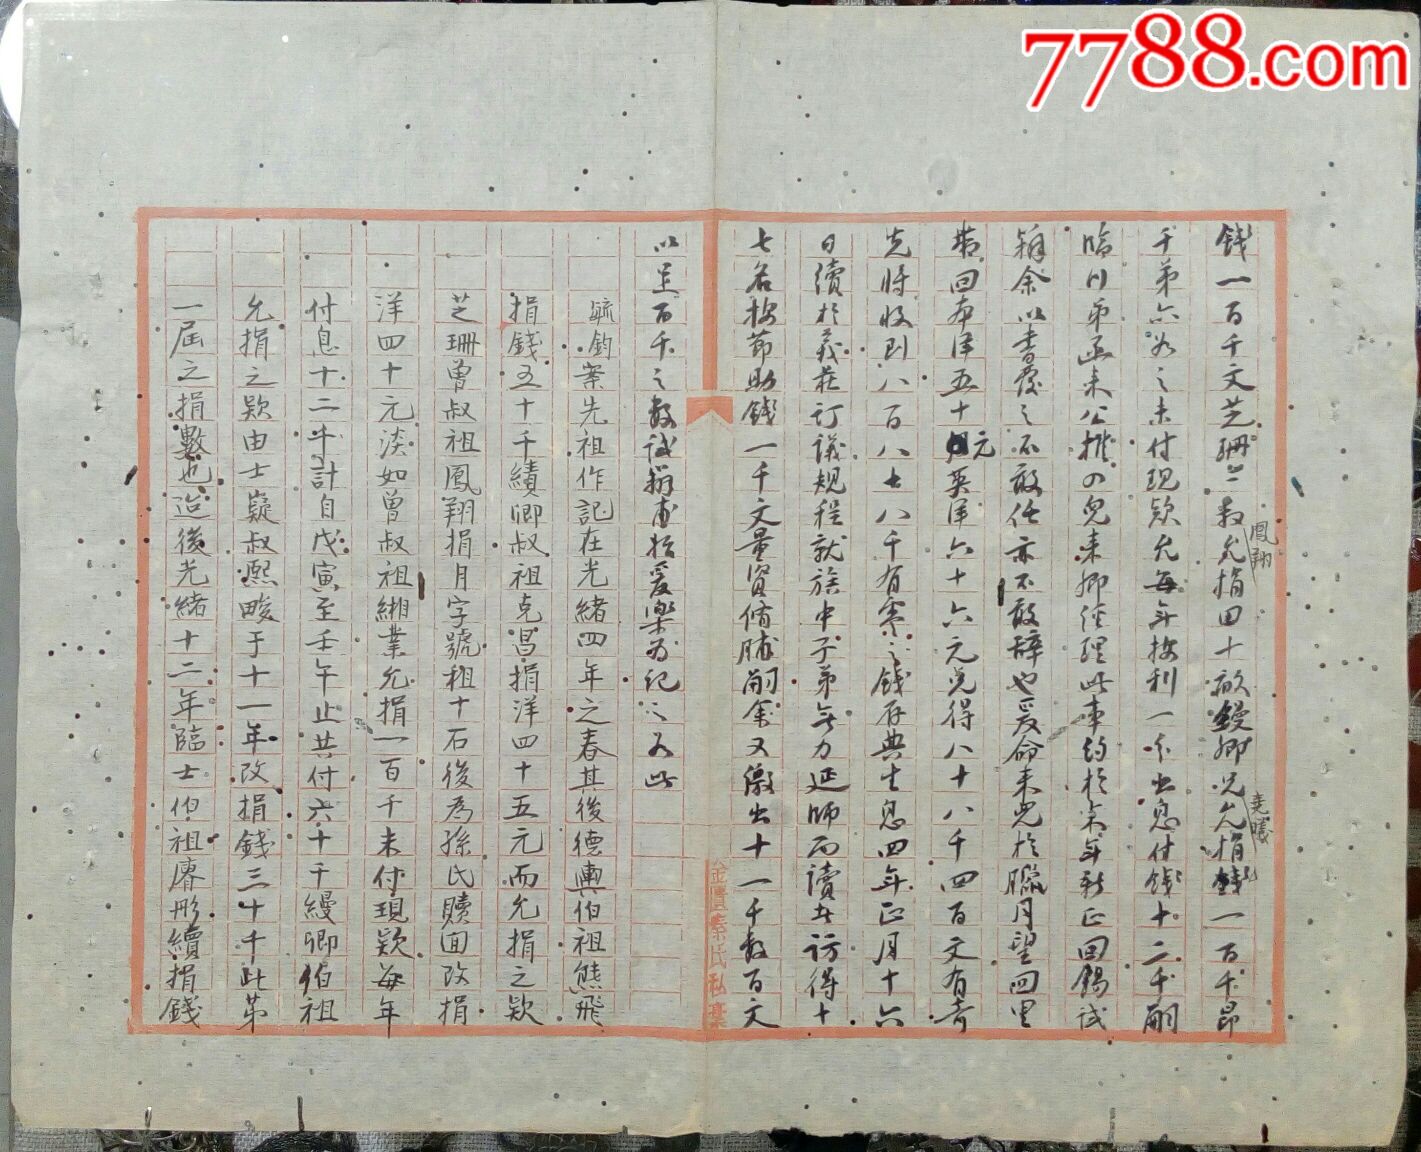 7788.com
錢一百千文芝珊兰叔允捐田十畝縵卿兄允捐錢一百千昂
鳳翔
堯曦
千第六次之未付現欵允每年按利一分出息付錢十二千嗣
臨川弟函来公推四兒来卿經理此事約於来年新正回錫試
辦余以書覆之不敢任亦不敢辞也爰命来兒於臘月望回里
帶回本洋五十元英洋六十六元兑得八十八千四百文有奇
先將收到八百八十八千有零之錢存典生息四年正月十六
日續於義莊訂議規程就族中子弟無力延師而讀者訪得十
七名按節助錢一千文量資脩脯嗣余又繳出十一千数百文
以足百千之数試辦甫始爰樂为纪之如此
毓鈞案先祖作記在光緒四年之春其後德輿伯祖熊飛
捐錢五十千績卿叔祖克昌捐洋四十五元而允捐之欵
芝珊曾叔祖鳳翔捐月字號租十石後為孫氏贖回改捐
洋四十元淡如曾叔祖緗業允捐一百千未付現欵每年
付息十二千計自戊寅至壬午止共付六十千縵卿伯祖
允捐之欵由士嶷叔熙畯于十一年改捐錢三十千此第
一屆之捐數也迨後光緒十二年臨士伯祖賡彤續捐錢
金匱秦氏私藁